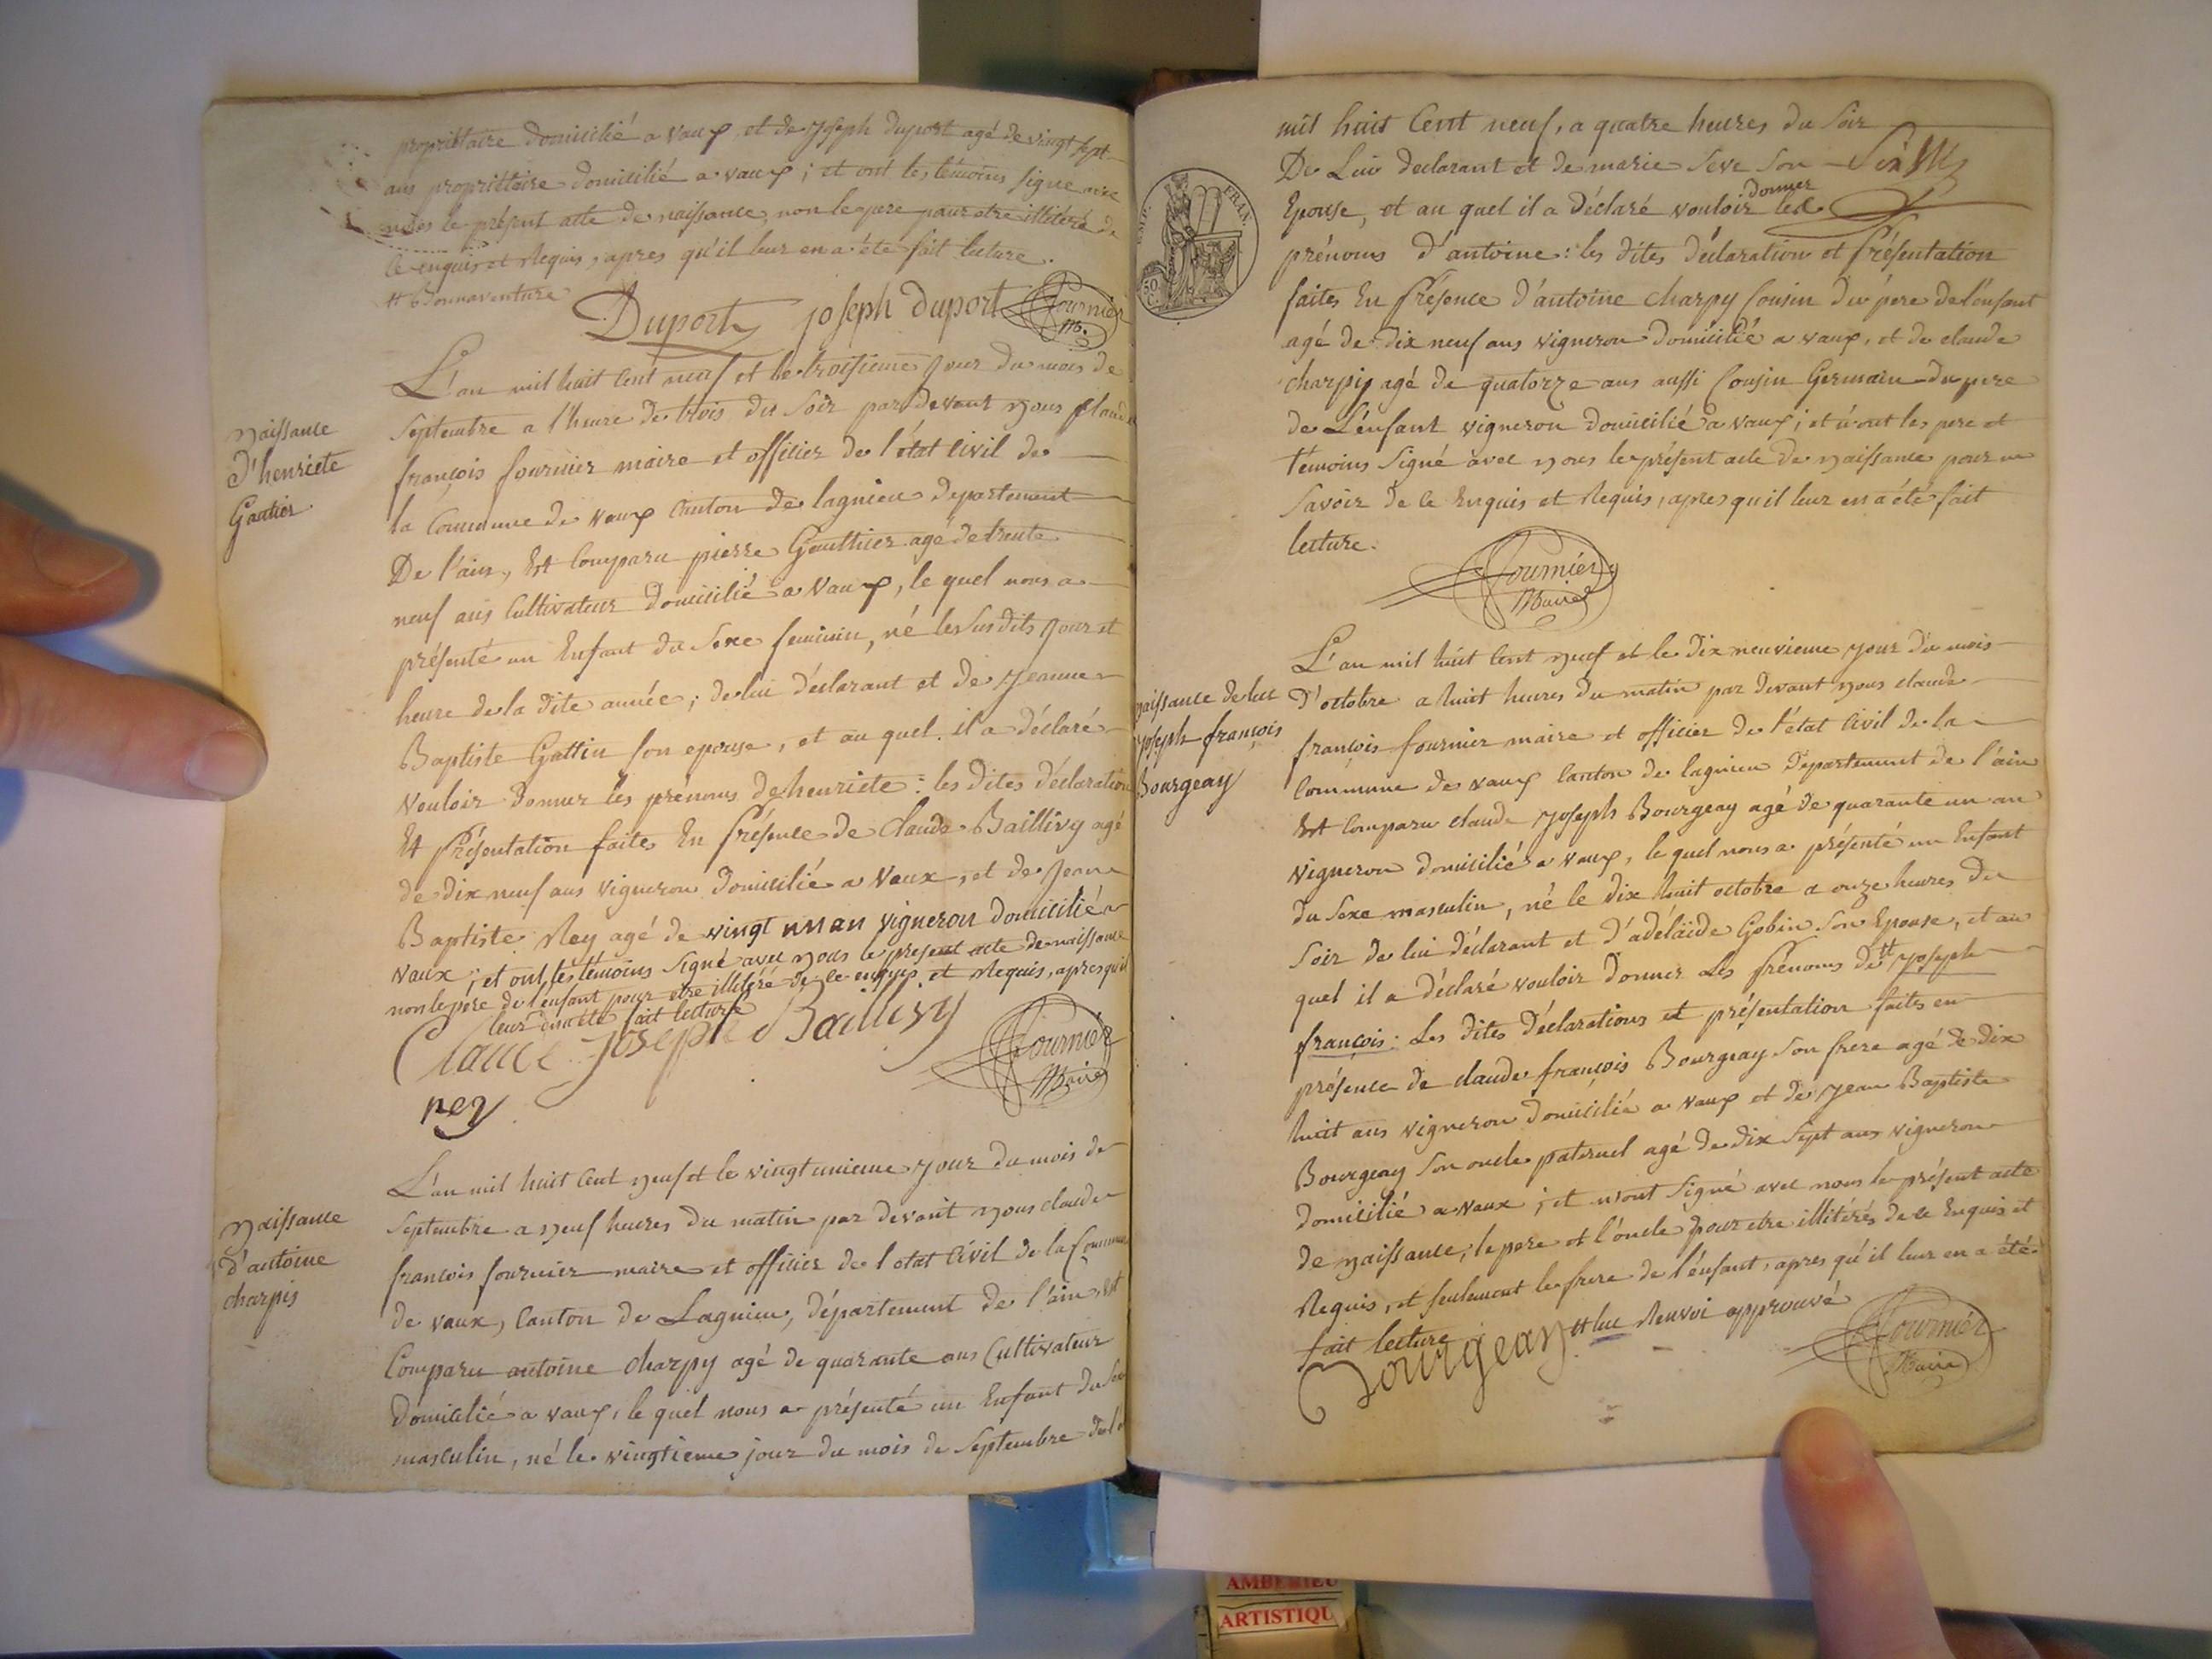 propriétaire domicilié a Vaux, et de Joseph duport agé de vingt sept
ans propriétaire domicilié a vaux; et ont les témoins signé avec
nous le présent acte de naissance, non le pere pour etre illitéré de
ce enquis et Requis, apres qu'il leur en a été fait lecture.
tt Bonnaventure
Duport joseph duport Fournier
M.
L'an mil huit Cent neuf et le troisieme jour du mois de
Septembre a l'heure de trois du Soir par devant nous Claude
françois fournier maire et officier de l'état Civil de
la Commune de vaux Canton de lagnieu departement
De l'ain, Est Comparu pierre Gauthier agé de trente
neuf ans Cultivateur Domicilié a Vaux, le quel nous a
présenté un Enfant du Sexe feminin, né les susdits jour et
heure de la dite année; de lui déclarant et de jeanne
Baptiste Gattin son epouse, et au quel il a déclaré
Vouloir Donner les prénoms de henriete: les dites déclaration
Et Présentation faites En Présence de Claude Baillivy agé
de dix neuf ans Vigneron Domicilié a Vaux, et de Jean
Baptiste Rey agé de vingt un an vigneron Domicilié a
vaux; et ont les témoins Signé avec nous le present acte de naissance
non le pere de l'enfant pour etre illitéré de ce enquis et Requis, apres qu'il
leur en a été fait lecture
Claude Joseph Baillivy Fournier
Maire
rey
Naissance
d'henriete
Gautier
L'an mil huit Cent neuf et le vingt unieme jour du mois de
Septembre a neuf heures du matin par devant nous claude
françois fournier maire et officier de l'etat Civil de la Commune
de vaux, Canton de Lagnieu, département de l'ain, est
Comparu antoine charpy agé de quarante ans Cultivateur
Domicilié a vaux, le quel nous a présenté un Enfant du Sexe
masculin, né le vingtieme jour du mois de Septembre de l'a
Naissance
d'antoine
charpis
mil huit Cent neuf, a quatre heures du Soir
De Lui declarant et de marie Seve Son
Epouse, et au quel il a Déclaré vouloir donner les
prénoms d'antoine: les dites déclaration et Présentation
faites En Présence d'antoine charpy Cousin du pere de l'enfant
agé de dix neuf ans vigneron domicilié a vaux, et de claude
charpis agé de quatorze ans aussi Cousin Germain du pere
de L'enfant vigneron domicilié a vaux; et n'ont les pere et
témoins Signé avec nous le présent acte de naissance pour ne
Savoir de ce Enquis et Requis, apres qu'il leur en a été fait
lecture.
Fournier
Maire
EMP. FRAN.
50
C.
L'an mil huit Cent neuf et le Dix neuvieme jour du mois
D'octobre a huit heures du matin par devant nous claude
françois fournier maire et officier de l'état Civil de la
Commune de vaux Canton de lagnieu Departement de l'ain
Est Comparu claude joseph Bourgeay agé de quarante un an
Vigneron domicilié a vaux, le quel nous a présenté un Enfant
du Sexe masculin, né le dix huit octobre a onze heures du
Soir de lui déclarant et d'adélaïde Gobin Son Epouse, et au
quel il a déclaré vouloir Donner Les Prénoms de tt joseph
françois: Les dites Déclarations et présentation faites en
présence de claude françois Bourgeay Son frere agé de dix
huit ans vigneron domicilié a vaux et de jean Baptiste
Bourgeay Son oncle paternel agé de dix Sept ans vigneron
domicilié a vaux; et n'ont Signé avec nous le présent acte
de naissance, le pere et l'oncle pour etre illitérés de ce Enquis et
Requis, et seulement le frere de l'énfant, apres qu'il leur en a été
fait lecture
tt luc Renvoi approuvé
Bourgeay Fournier
Maire
Naissance de luc
joseph françois
Bourgeay
AMBERIEU
ARTISTIQU